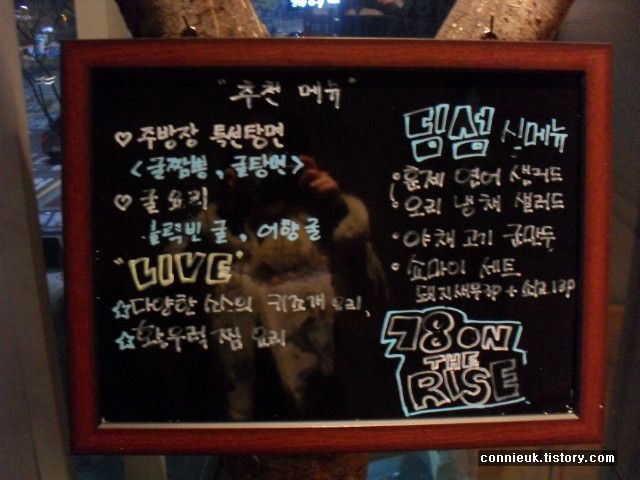 "추천 메뉴"
♡ 주방장 특선탕면
<굴짬뽕, 굴탕면>
♡ 굴 요리
블랙빈 굴, 어향 굴
"LIVE"
☆다양한 소스의 키조개 요리,
☆활우럭 찜 요리
딤섬 신메뉴
• 훈제 연어 샐러드
• 오리 냉채 샐러드
• 야채 고기 군만두
• 쇼마이 세트
돼지새우3P +
78 ON
THE
RISE
connieuk.tistory.com